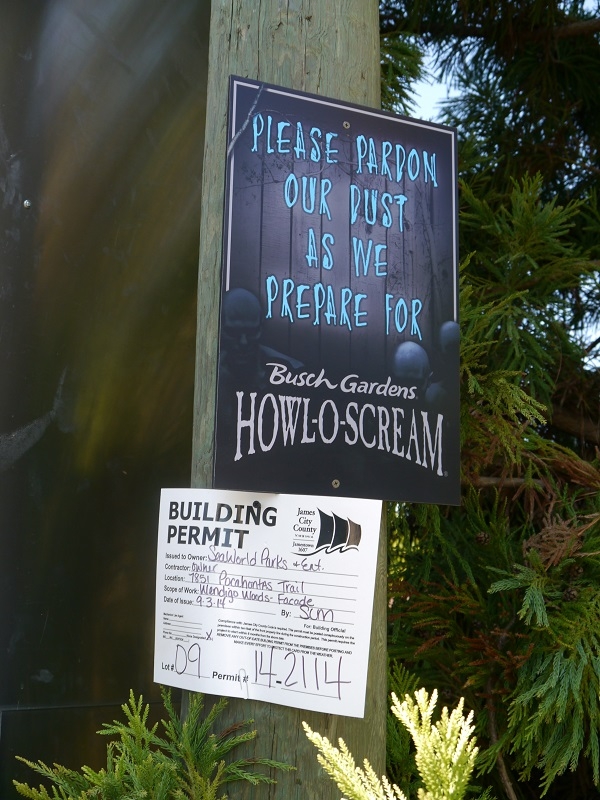 PLEASE PARDON
OUR DUST
AS WE
PREPARE FOR
Busch Gardens
HOWL-O-SCREAM
BUILDING
PERMIT
James
City
County
VIRGINIA
Jamestown
1607
Issued to Owner: SeaWorld Parks + Ent.
Contractor: Owner
Location: 7851 Pocahontas Trail
Scope of Work: Wendigo Woods - Facade
Date of Issue: 9-3-14 By: SCM
For: Building Official
MAKE EVERY EFFORT TO PROTECT THIS CARD FROM THE WEATHER.
Lot # 09 Permit # 14-2114